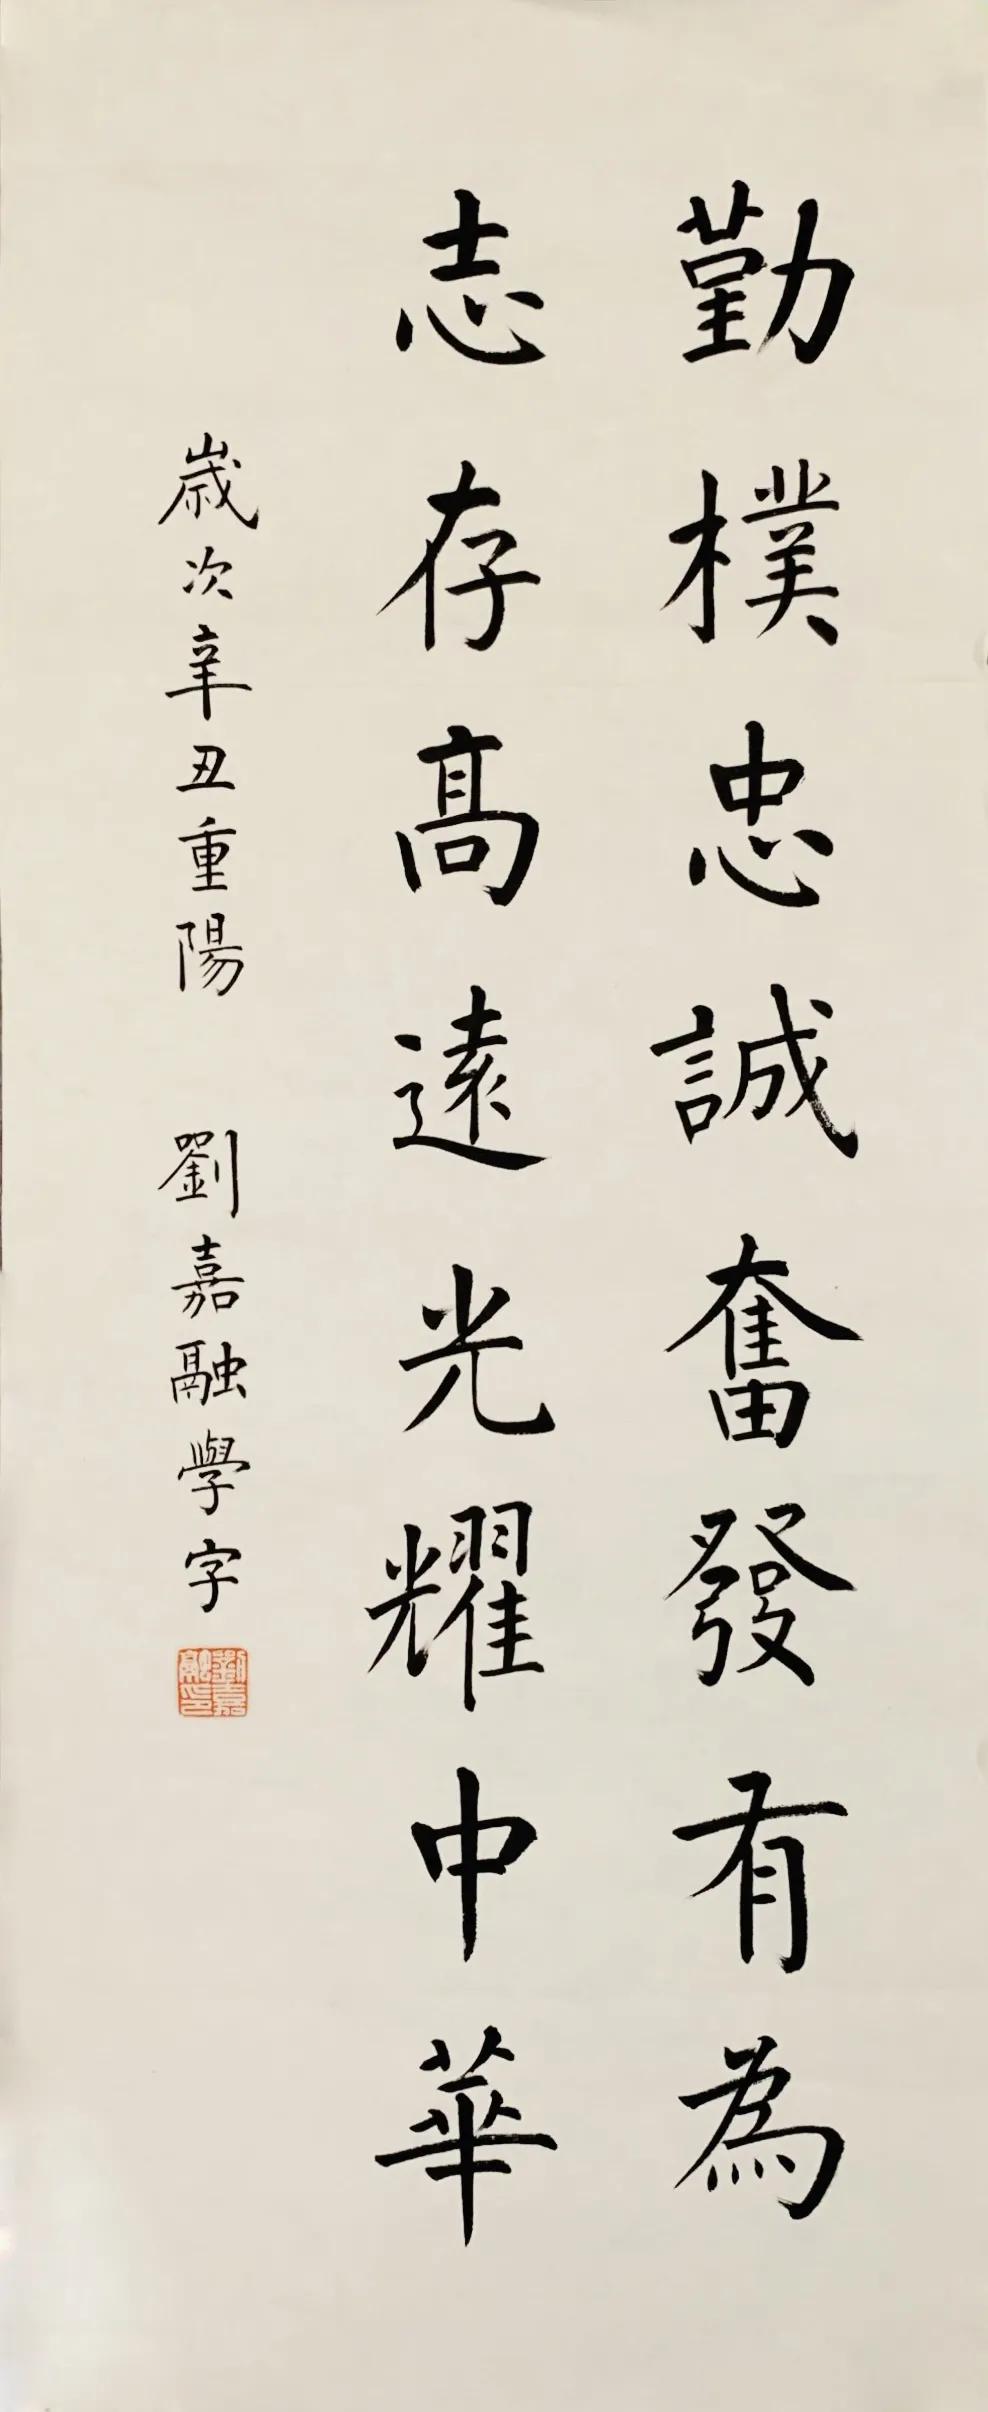 勤樸忠誠奮發有為
志存高遠光耀中華
歲次辛丑重陽 劉嘉融學字
劉嘉融印